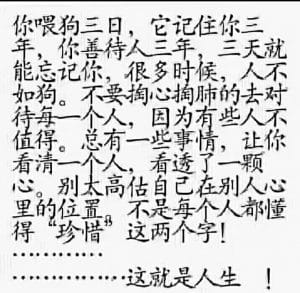 你喂狗三日，它记住你三
年，你善待人三年，三天就
能忘记你，很多时候，人不
如狗。不要掏心掏肺的去对
待每一个人，因为有些人不
值得。总有一些事情，让你
看清一个人，看透了一颗
心。别太高估自己在别人心
里的位置，不是每个人都懂
得“珍惜”这两个字！
…………
………………这就是人生　！